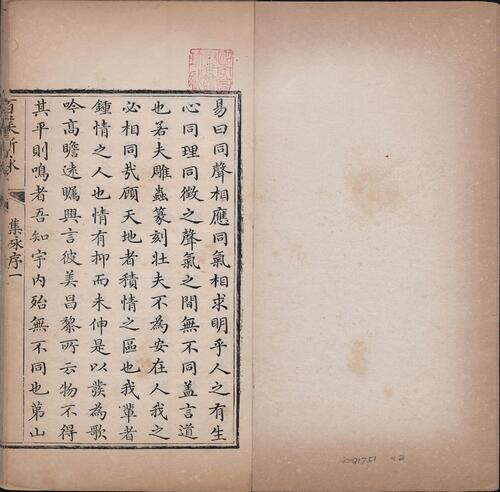 易曰同聲相應同氣相求明乎人之有生
心同理同徵之聲氣之間無不同盖言道
也若夫雕蟲篆刻壯夫不為安在人我之
必相同㢤顧天地者積情之區也我輩者
鍾情之人也情有抑而未伸是以發為歌
吟高瞻遠矚興言彼美昌黎所云物不得
其平則鳴者吾知宇内殆無不同也苐山
百美新詠
集詠序一